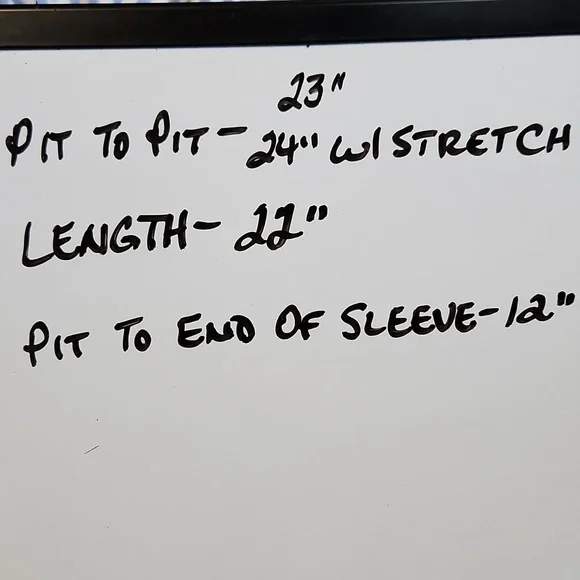 23"
PIT TO PIT - 24" W/ STRETCH
LENGTH - 22"
PIT TO END OF SLEEVE - 12"